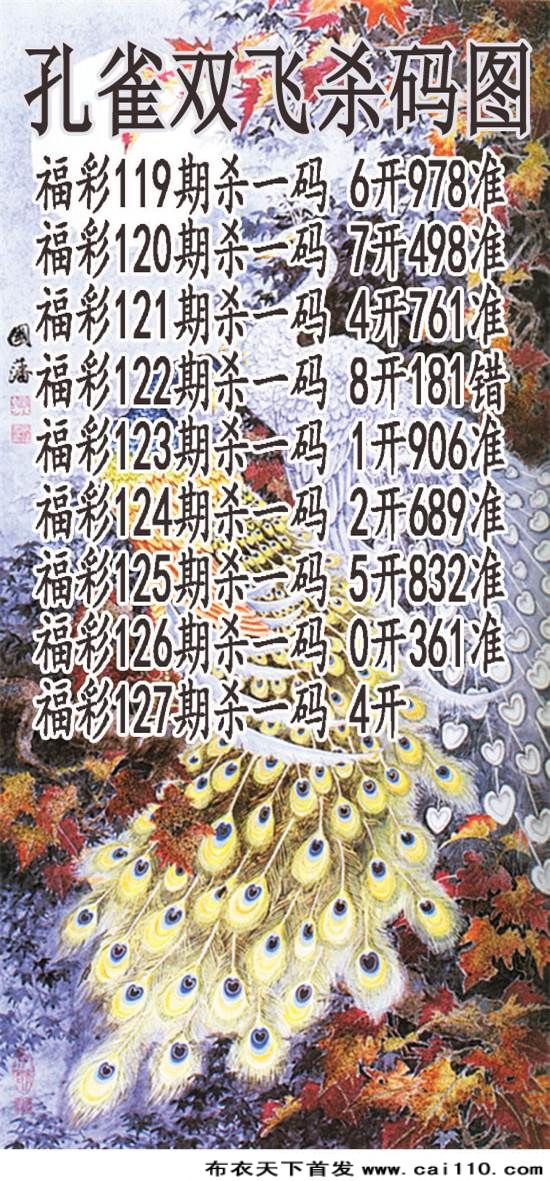 孔雀双飞杀码图
福彩119期杀一码 6开978准
福彩120期杀一码 7开498准
福彩121期杀一码 4开761准
福彩122期杀一码 8开181错
福彩123期杀一码 1开906准
福彩124期杀一码 2开689准
福彩125期杀一码 5开832准
福彩126期杀一码 0开361准
福彩127期杀一码 4开
國藩
布衣天下首发 www.cai110.com